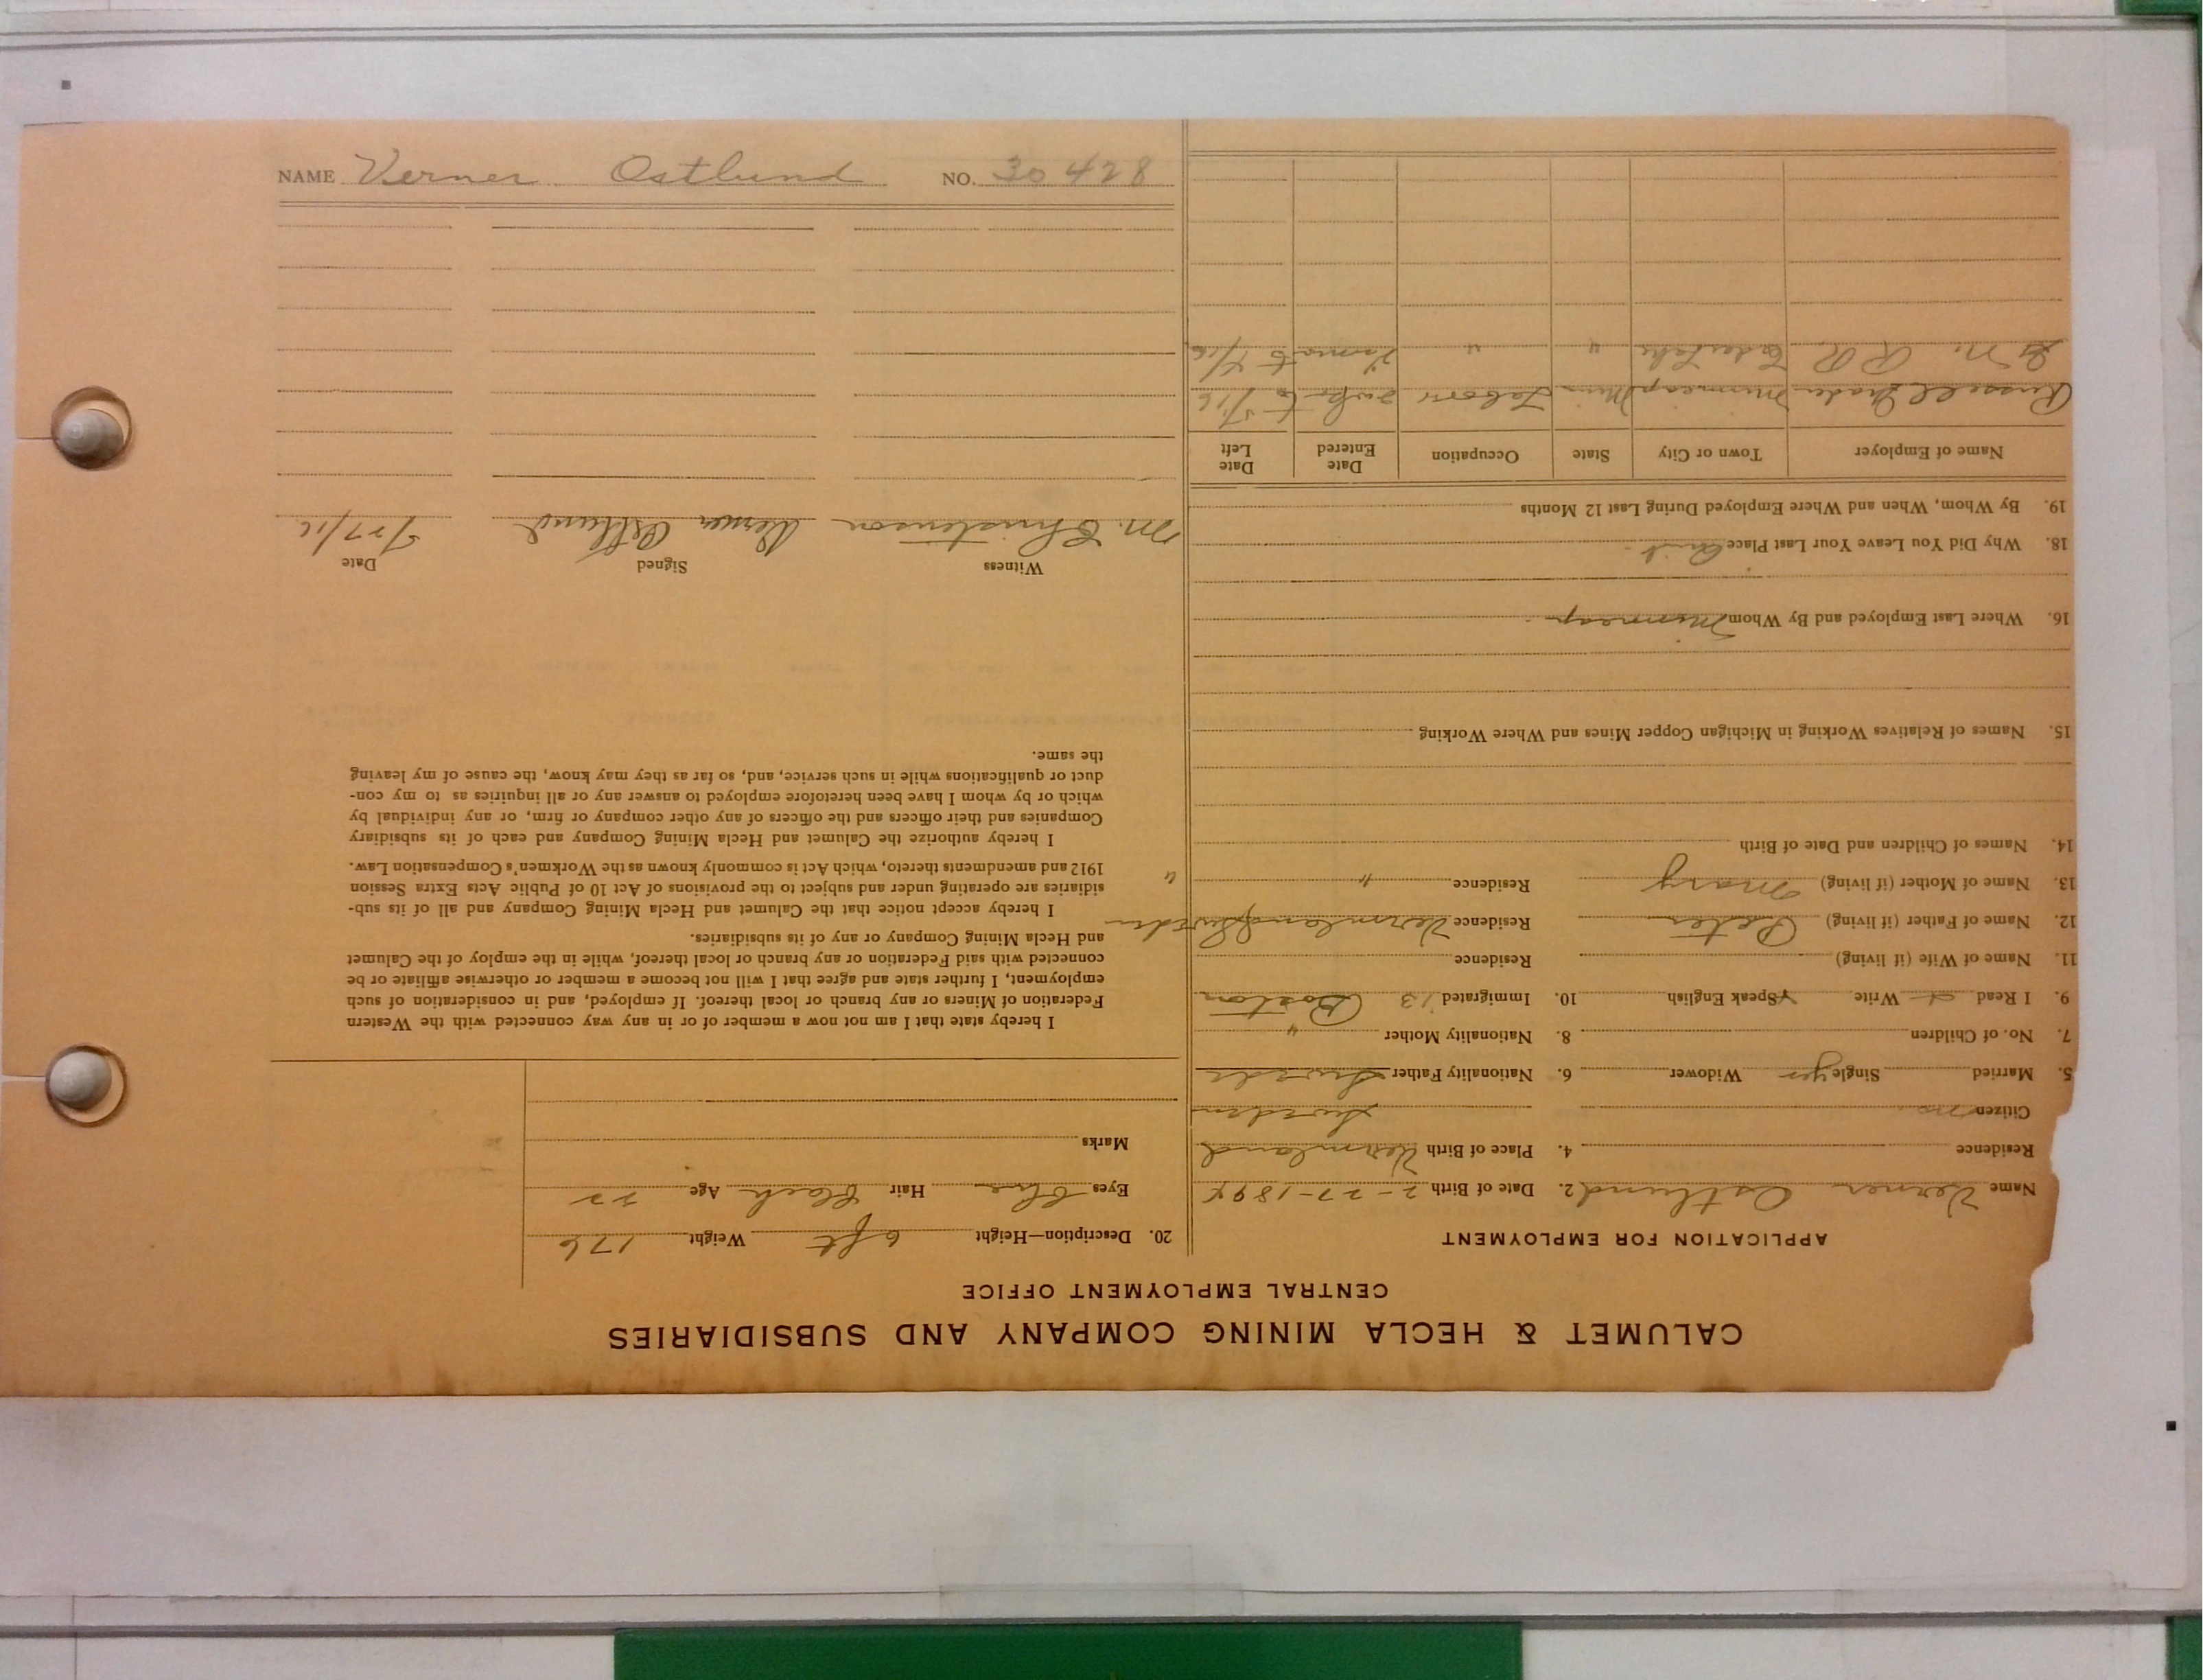 CALUMET & HECLA MINING COMPANY AND SUBSIDIARIES
CENTRAL EMPLOYMENT OFFICE
APPLICATION FOR EMPLOYMENT
Name Verner Ostlund 2. Date of Birth 2-27-1894
Residence 4. Place of Birth Vermland
Citizen no Sweden
5. Married Single yes Widower 6. Nationality Father Swede
7. No. of Children 8. Nationality Mother "
9. I Read Write Speak English 10. Immigrated 13 Boston
11. Name of Wife (if living) Residence
12. Name of Father (if living) Peter Residence Vermland Sweden
13. Name of Mother (if living) Mary Residence " "
14. Names of Children and Date of Birth
15. Names of Relatives Working in Michigan Copper Mines and Where Working
16. Where Last Employed and By Whom Minneap
18. Why Did You Leave Your Last Place Quit
19. By Whom, When and Where Employed During Last 12 Months
Name of Employer Town or City State Occupation Date Entered Date Left
Russell Minneap Minn Labor 5/16
G. N. R R " " 4/16
20. Description—Height 6 ft Weight 176
Eyes Blue Hair Black Age 22
Marks
I hereby state that I am not now a member of or in any way connected with the Western
Federation of Miners or any branch or local thereof. If employed, and in consideration of such
employment, I further state and agree that I will not become a member or otherwise affiliate or be
connected with said Federation or any branch or local thereof, while in the employ of the Calumet
and Hecla Mining Company or any of its subsidiaries.
I hereby accept notice that the Calumet and Hecla Mining Company and all of its sub-
sidiaries are operating under and subject to the provisions of Act 10 of Public Acts Extra Session
1912 and amendments thereto, which Act is commonly known as the Workmen's Compensation Law.
I hereby authorize the Calumet and Hecla Mining Company and each of its subsidiary
Companies and their officers and the officers of any other company or firm, or any individual by
which or by whom I have been heretofore employed to answer any or all inquiries as to my con-
duct or qualifications while in such service, and, so far as they may know, the cause of my leaving
the same.
Witness Signed Date
M. Christenson Verner Ostlund 5/27/16
NAME Verner Ostlund NO. 30428